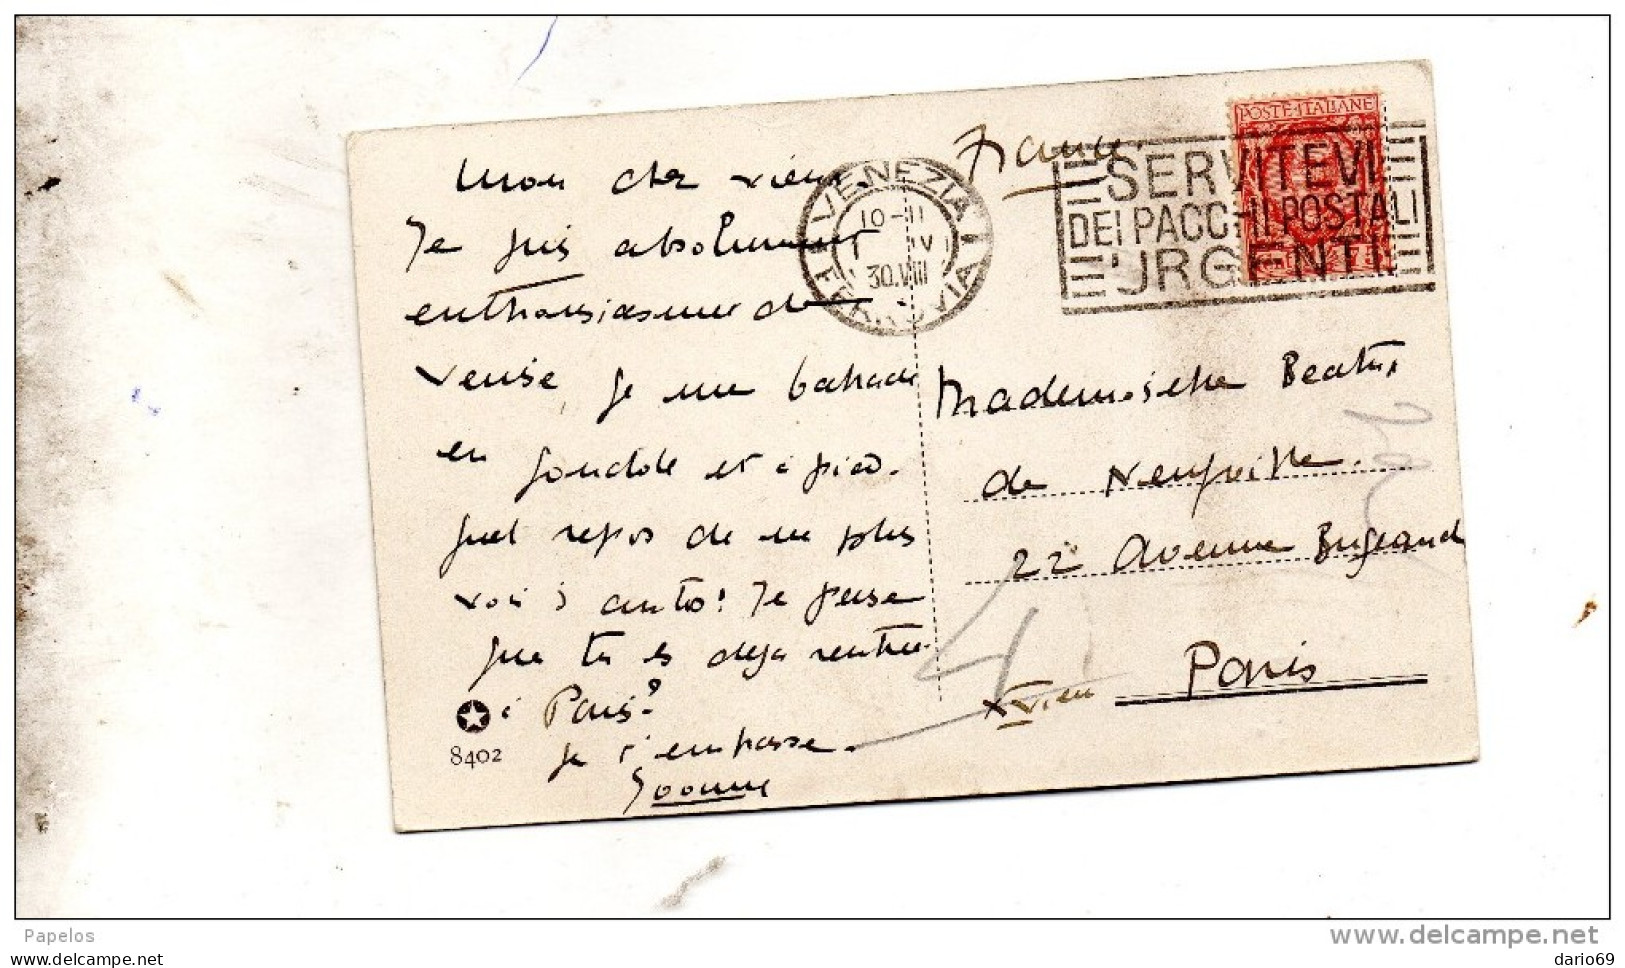 Mon cher vieux.
Je suis absolument
enthousiasmée de
Venise, je me balade
en gondole et à pied.
quel repos de ne plus
voir d'autos! Je pense
que tu es déjà rentrée
à Paris?
Je t'embrasse.
Yvonne
8402
France.
VENEZIA
10-11
IV
30.VIII
FERROVIA
POSTE·ITALIANE
SERVITEVI
DEI PACCHI POSTALI
URGENTI
Mademoiselle Beatrix
de Neufville.
22 Avenue Bugeaud
Paris
XVIem
Papelos
delcampe.net
www.delcampe.net
dario69